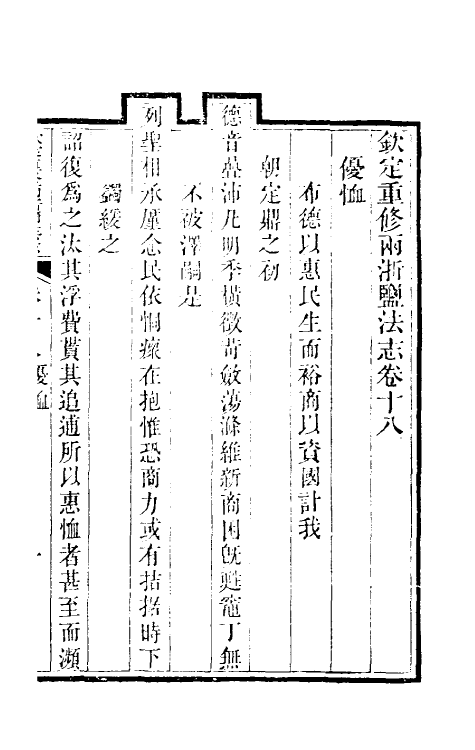 欽定重修兩浙鹽法志卷十八
優恤
布德以惠民生而裕商以資國計我
朝定鼎之初
德音疊沛凡明季橫徵苛斂蕩滌維新商困旣甦竈丁無
不被澤嗣是
列聖相承厪念民依恫瘝在抱惟恐商力或有拮据時下
蠲緩之
詔復爲之汰其浮費貰其追逋所以惠恤者甚至而瀕
優恤